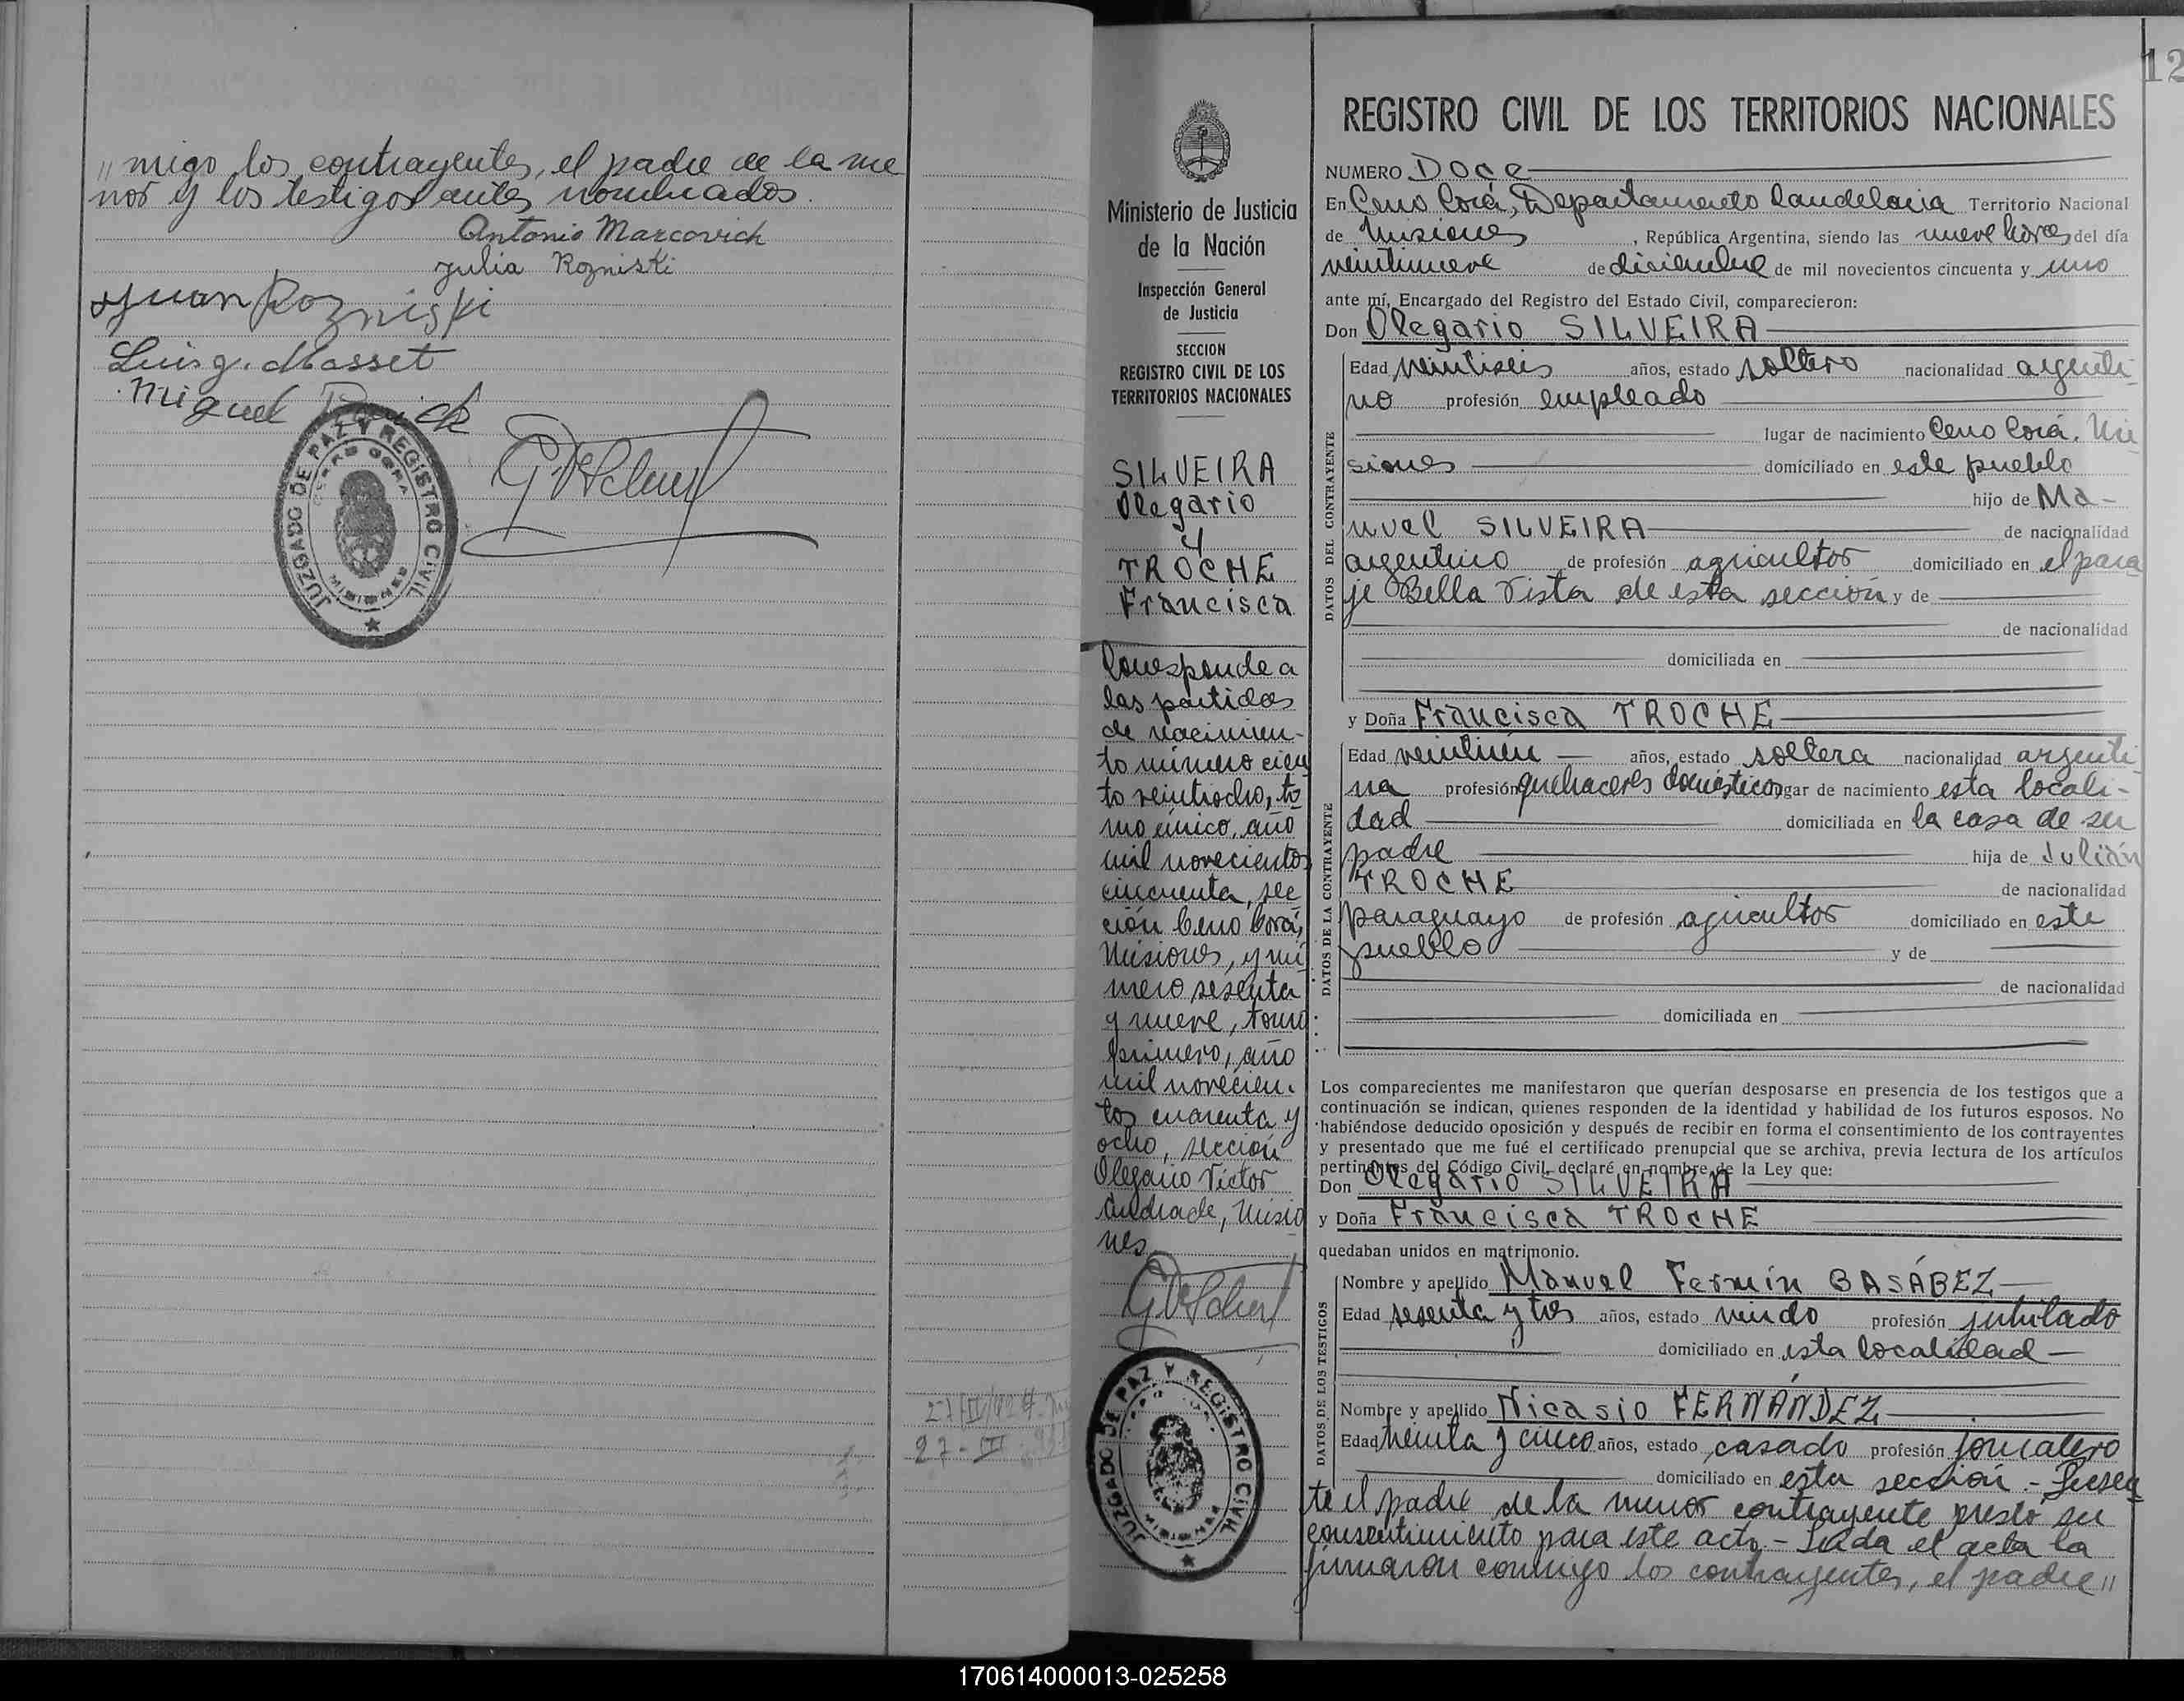 "migo los contrayentes, el padre de la me
nor y los testigos antes nombrados.
Antonio Marcovich
Julia Rozniski
Juan Rozniski
Luis J. Masset
Miguel
JUZGADO DE PAZ Y REGISTRO CIVIL
CERRO CORA
MISIONES
27-III
12
Ministerio de Justicia
de la Nación
Inspección General
de Justicia
SECCION
REGISTRO CIVIL DE LOS
TERRITORIOS NACIONALES
SILVEIRA
Olegario
y
TROCHE
Francisca
Corresponde a
las partidas
de nacimien-
to número cien
to veintiocho, to
mo único, año
mil novecientos
cincuenta, sec
ción Cerro Corá,
Misiones, y nú
mero sesenta
y nueve, tomo
primero, año
mil novecien-
tos cuarenta y
ocho, sección
Olegario Víctor
Andrade, Misio
nes.
JUZGADO DE PAZ Y REGISTRO CIVIL
REGISTRO CIVIL DE LOS TERRITORIOS NACIONALES
NUMERO Doce
En Cerro Corá, Departamento Candelaria Territorio Nacional
de Misiones, República Argentina, siendo las nueve horas del día
veintinueve de diciembre de mil novecientos cincuenta y uno
ante mí, Encargado del Registro del Estado Civil, comparecieron:
Don Olegario SILVEIRA
DATOS DEL CONTRAYENTE
Edad veintiseis años, estado soltero nacionalidad argenti-
no profesión empleado
lugar de nacimiento Cerro Corá, Mi
siones domiciliado en este pueblo
hijo de Ma-
nuel SILVEIRA de nacionalidad
argentino de profesión agricultor domiciliado en el para
je Bella Vista de esta sección y de
de nacionalidad
domiciliada en
y Doña Francisca TROCHE
DATOS DE LA CONTRAYENTE
Edad veintiún años, estado soltera nacionalidad argenti
na profesión quehaceres domésticos gar de nacimiento esta locali-
dad domiciliada en la casa de su
padre hija de Julián
TROCHE de nacionalidad
paraguayo de profesión agricultor domiciliado en este
pueblo y de
de nacionalidad
domiciliada en
Los comparecientes me manifestaron que querían desposarse en presencia de los testigos que a
continuación se indican, quienes responden de la identidad y habilidad de los futuros esposos. No
habiéndose deducido oposición y después de recibir en forma el consentimiento de los contrayentes
y presentado que me fué el certificado prenupcial que se archiva, previa lectura de los artículos
pertinentes del Código Civil, declaré en nombre de la Ley que:
Don Olegario SILVEIRA
y Doña Francisca TROCHE
quedaban unidos en matrimonio.
DATOS DE LOS TESTIGOS
Nombre y apellido Manuel Fermín BASÁBEZ
Edad sesenta y tres años, estado viudo profesión jubilado
domiciliado en esta localidad
Nombre y apellido Nicasio FERNÁNDEZ
Edad treinta y cinco años, estado casado profesión jornalero
domiciliado en esta sección.- Presen
te el padre de la menor contrayente prestó su
consentimiento para este acto.- Leída el acta la
firmaron conmigo los contrayentes, el padre "
170614000013-025258